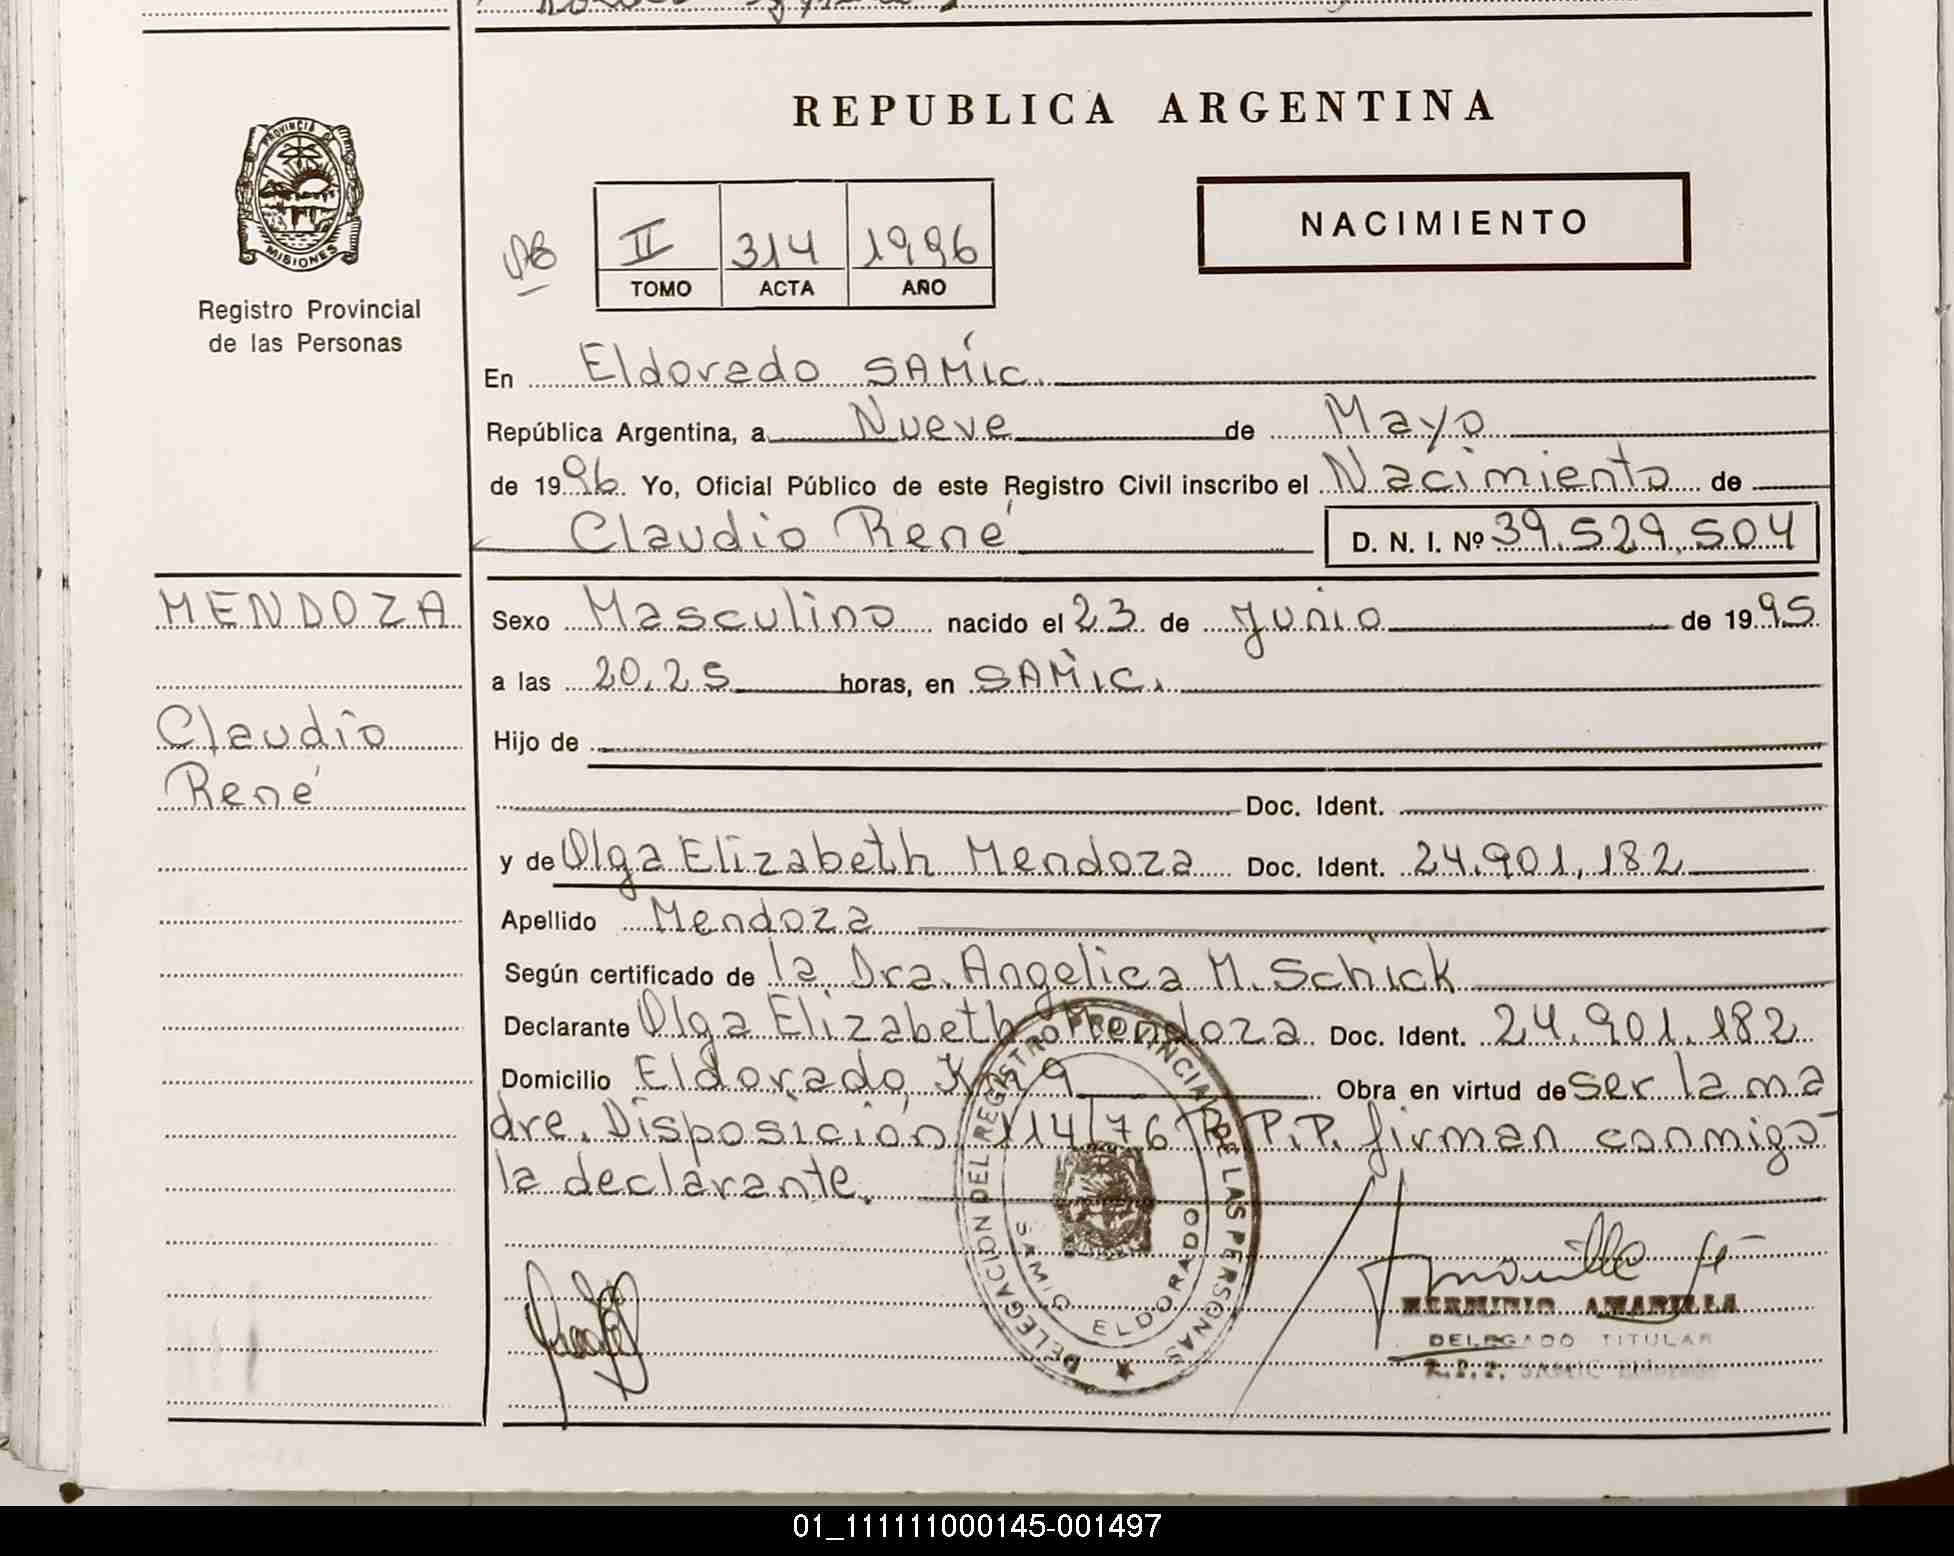 REPUBLICA ARGENTINA
PROVINCIA DE
MISIONES
Registro Provincial
de las Personas
II 314 1996
TOMO ACTA AÑO
NACIMIENTO
En Eldorado SAMIC.
República Argentina, a Nueve de Mayo
de 1996 Yo, Oficial Público de este Registro Civil inscribo el Nacimiento de
Claudio René D. N. I. Nº 39.529.504
MENDOZA
Claudio
René
Sexo Masculino nacido el 23 de Junio de 1995
a las 20,25 horas, en SAMIC.
Hijo de
Doc. Ident.
y de Olga Elizabeth Mendoza Doc. Ident. 24.901.182
Apellido Mendoza
Según certificado de la Dra. Angelica M. Schick
Declarante Olga Elizabeth Mendoza Doc. Ident. 24.901.182
Domicilio Eldorado, Km 9 Obra en virtud de ser la ma
dre. Disposición 114/76 R.P.P. firman conmigo
la declarante.
DELEGACION DEL REGISTRO PROVINCIAL DE LAS PERSONAS
SAMIC ELDORADO
HERMINIO AMARILLA
DELEGADO TITULAR
R.P.P. SAMIC Eldorado
01_111111000145-001497